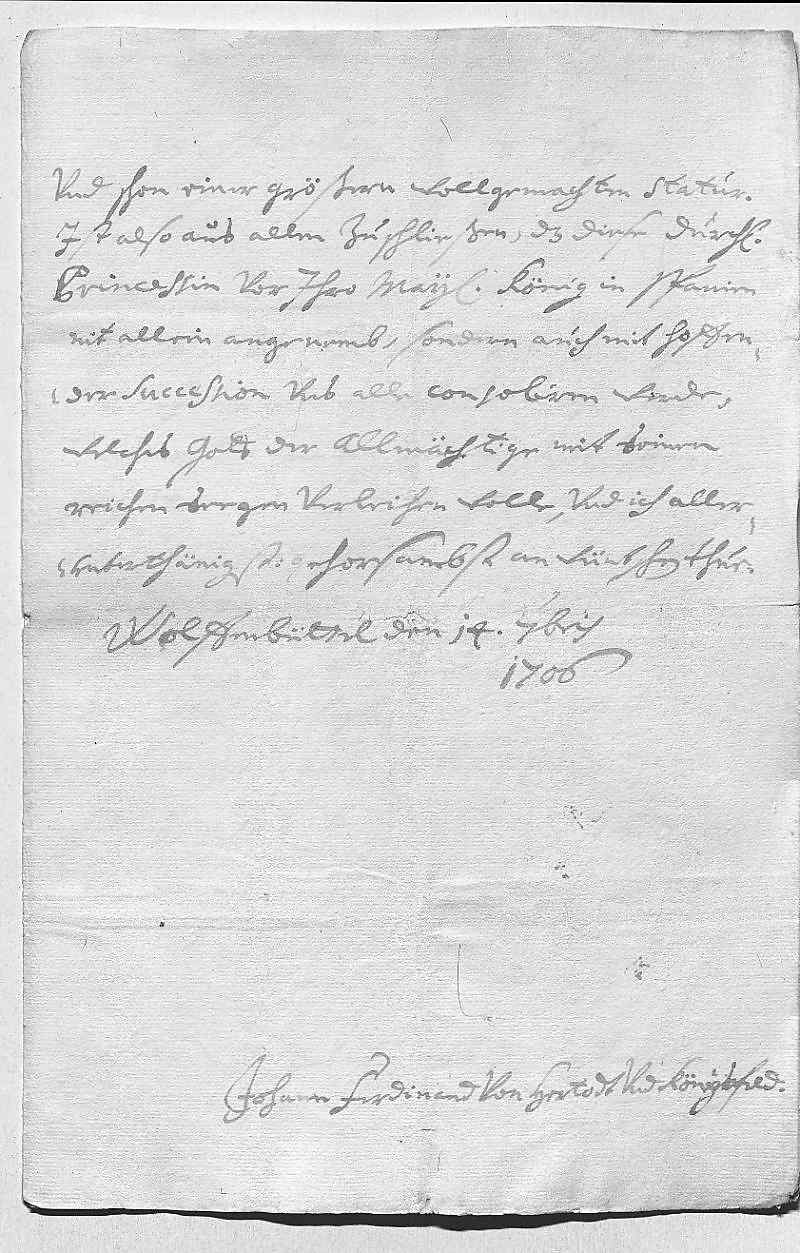 Und schon einer größern vollgemachten Statur.
Ist also aus allen zuschließen, dz diese Durchl.
Princessin vor Ihro Mayl. König in Spanien
nit allein angenemb, sondern auch mit hoffen,
der Succession uns alle consoliren werde,
welches Gott der Allmächtige mit seinen
reichen Seegen verleihen wolle, Und ich aller,
unterthänigst gehorsambst anwünschen thue.
Wolffenbüttel den 14. 7bris
1706
Johann Ferdinand von Hertodt Und Königsfeld.